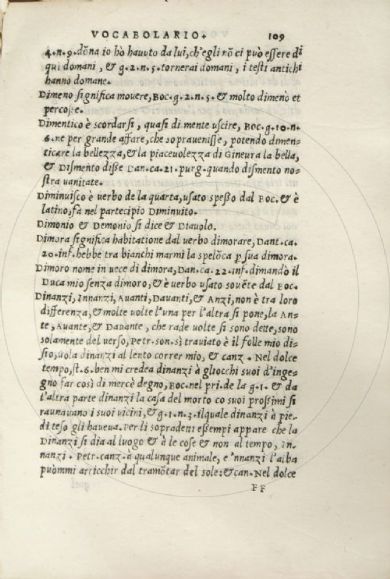 VOCABOLARIO. 109
4. n. 9. dōna io hò hauuto da lui, ch'egli nō ci può essere di
qui domani, & g. 2. n. 5. tornerai domani, i testi antichi
hanno domane.
Dimeno significa mouere, Boc. g. 2. n. 5. & molto dimeno et
percosse.
Dimentico è scordarsi, quasi di mente uscire, Boc. g. 10. n.
6. ne per grande affare, che soprauenisse, potendo dimen-
ticare la bellezza, & la piaceuolezza di Gineura la bella,
& Dismento disse Dan. ca. 21. purg. quando dismento no-
stra uanitate.
Diminuisco è uerbo de la quarta, usato spesso dal Boc. & è
latino, fà nel partecipio Diminuito.
Dimonio & Demonio si dice & Diauolo.
Dimora significa habitatione dal uerbo dimorare, Dant. ca.
20. inf. hebbe tra bianchi marmi la spelōca p sua dimora.
Dimoro nome in uece di dimora, Dan. ca. 22. inf. dimando il
Duca mio senza dimoro, & è uerbo usato souēte dal Boc.
Dinanzi, Innanzi, Auanti, Dauanti, & Anzi, non è tra loro
differenza, & molte uolte l'una per l'altra si pone, la An-
te, Auante, & Dauante, che rade uolte si sono dette, sono
solamente del uerso, Petr. son. sì trauiato è il folle mio di-
sio, uola dinanzi al lento correr mio, & canz. Nel dolce
tempo, st. 6. ben mi credea dinanzi à gliocchi suoi d'inge-
gno far così di mercè degno, Boc. nel pri. de la g. 1. & da
l'altra parte dinanzi la casa del morto co suoi prossimi si
raunauano i suoi uicini, & g. 1. n. 3. ilquale dinanzi à pie-
di teso gli haueua. Per li sopradetti essempi appare che la
Dinanzi si dia al luogo & è le cose & non al tempo, In-
nanzi. Petr. canz. à qualunque animale, e 'nnanzi l'alba
puommi arricchir dal tramōtar del sole: & can. Nel dolce
FF